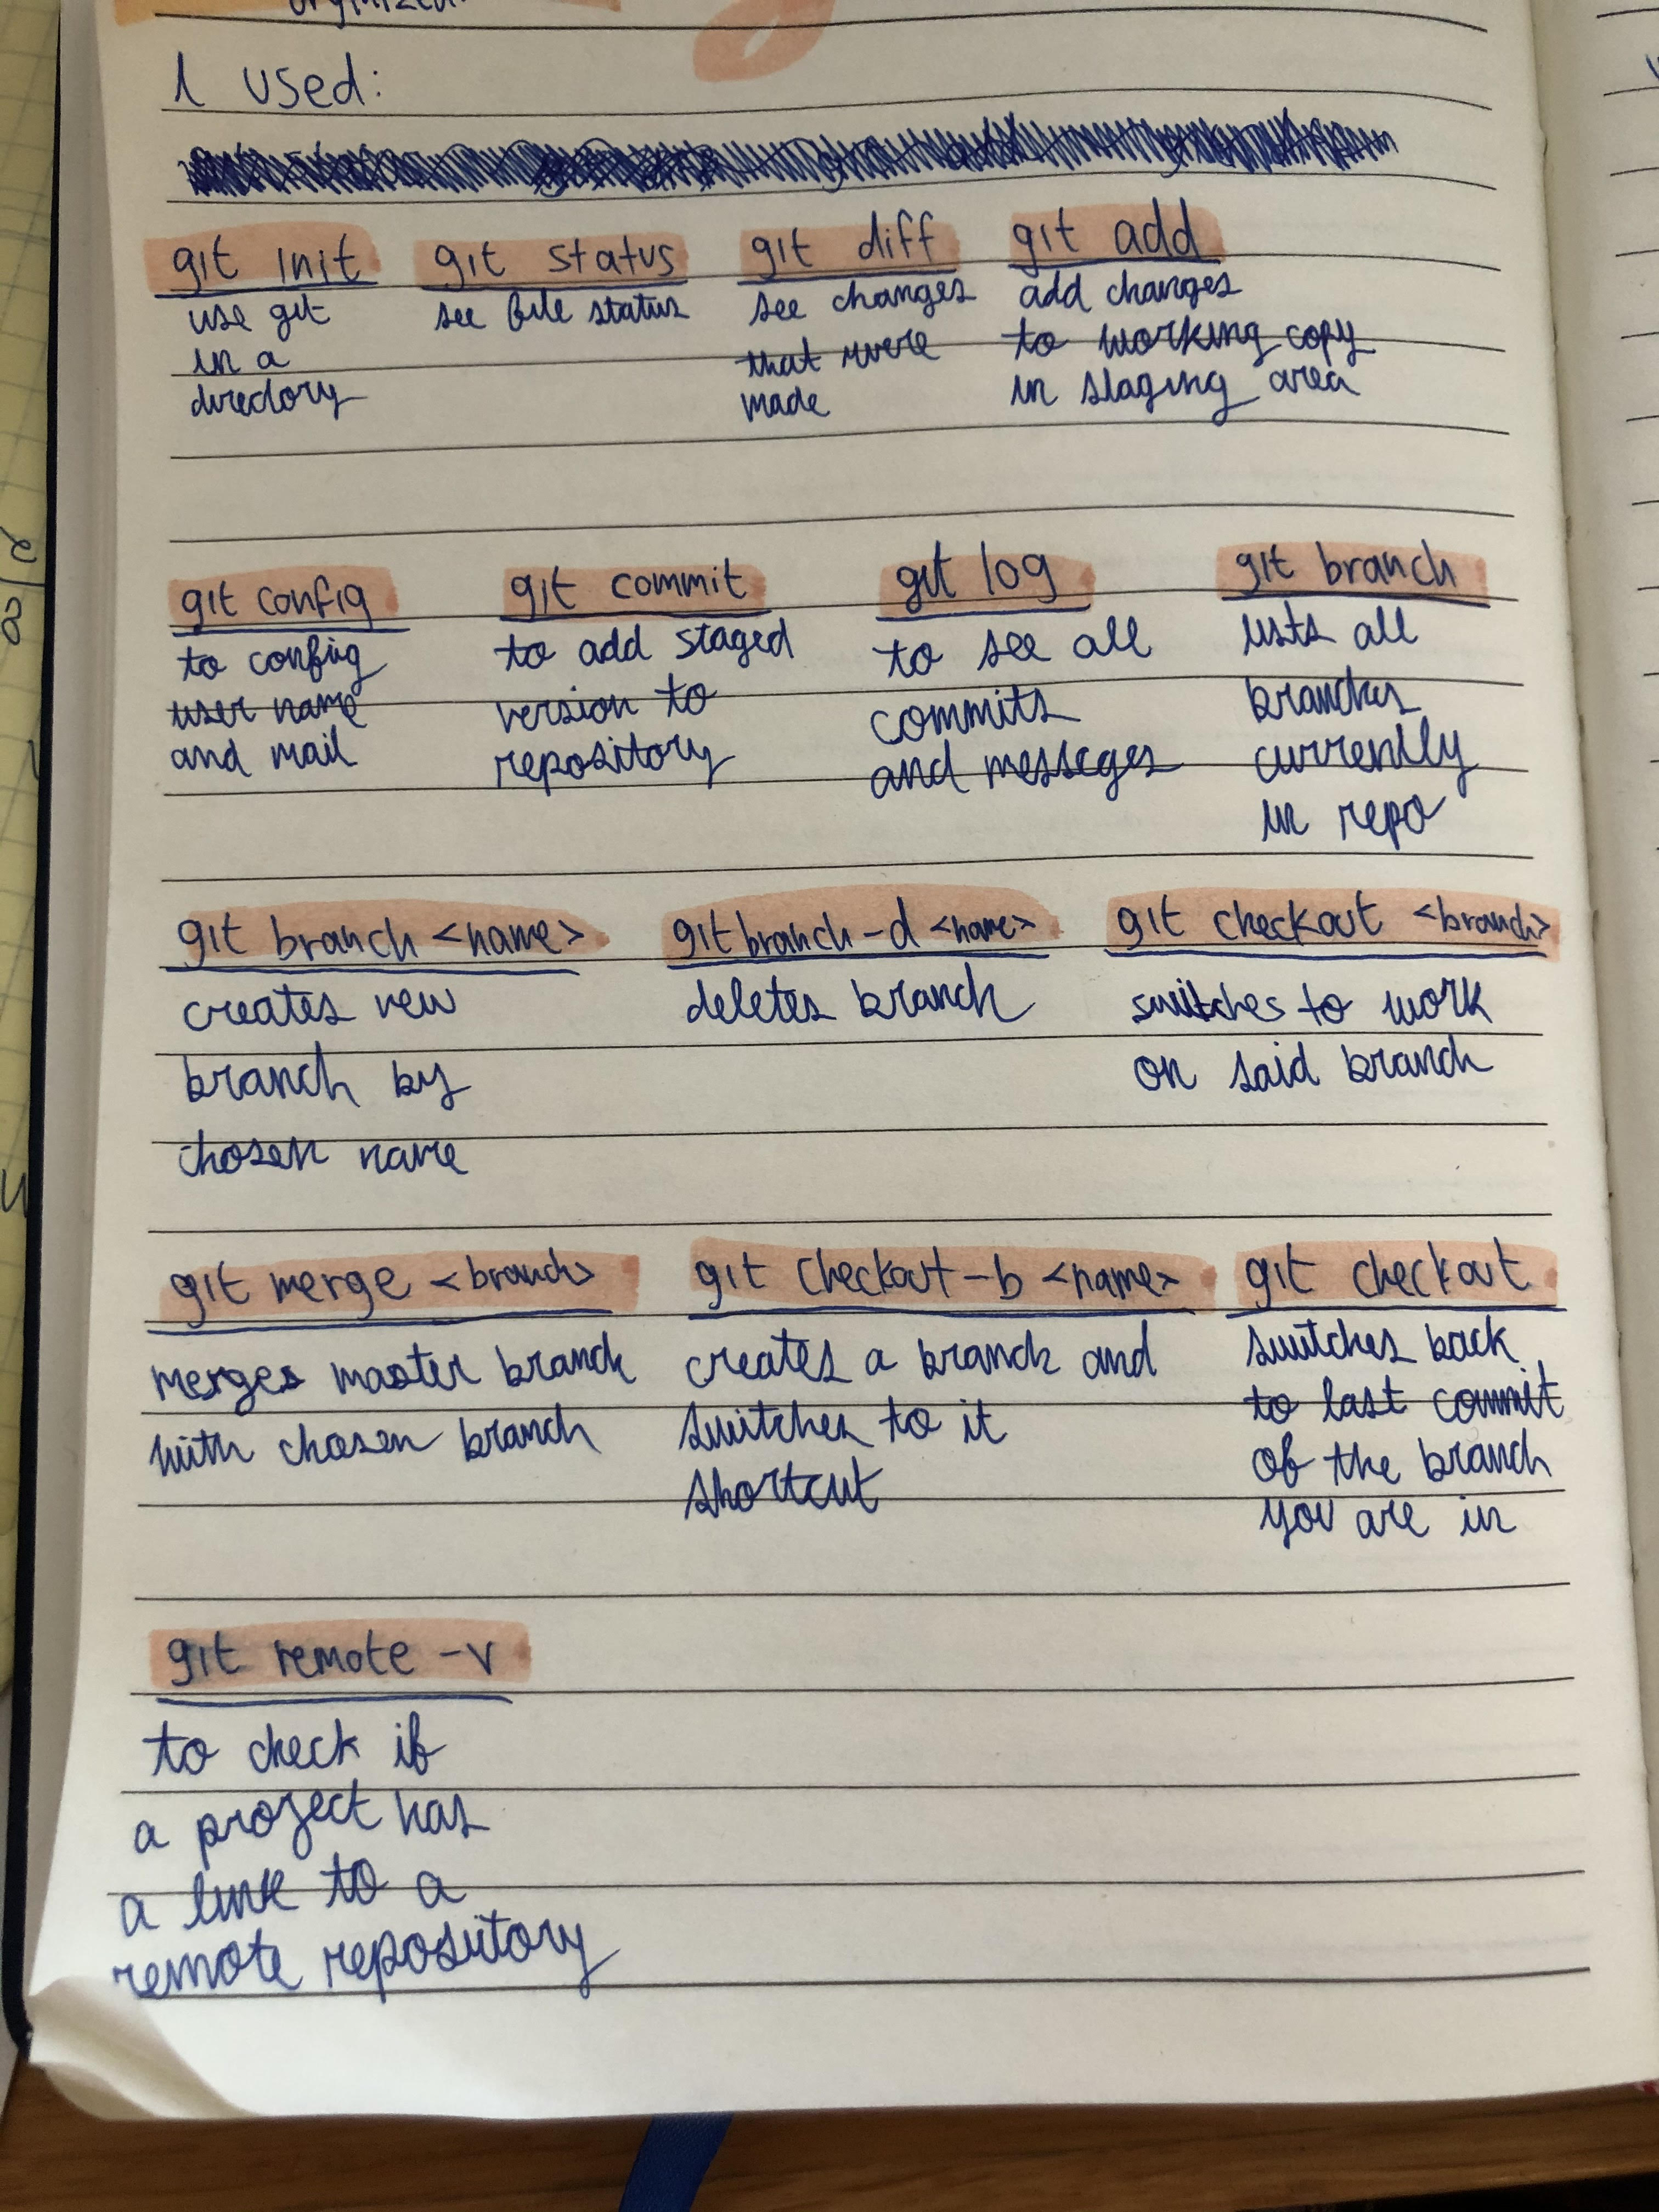 organized.
I used:
git init
use git
in a
directory
git status
see file status
git diff
see changes
that were
made
git add
add changes
to working copy
in staging area
git config
to config
user name
and mail
git commit
to add staged
version to
repository
git log
to see all
commits
and messages
git branch
lists all
branches
currently
in repo
git branch <name>
creates new
branch by
chosen name
git branch -d <name>
deletes branch
git checkout <branch>
switches to work
on said branch
git merge <branch>
merges master branch
with chosen branch
git checkout -b <name>
creates a branch and
switches to it
shortcut
git checkout
switches back
to last commit
of the branch
you are in
git remote -v
to check if
a project has
a link to a
remote repository